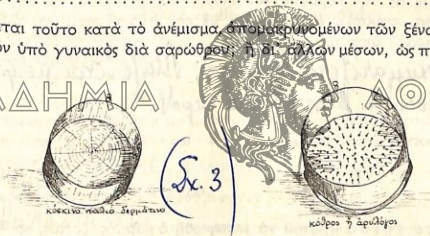 εται τοῦτο κατὰ τὸ ἀνέμισμα, ἀπομακρυνομένων τῶν ξένω
ὸν ὑπὸ γυναικὸς διὰ σαρώθρου; ἢ δι' ἄλλων μέσων, ὡς π
ΑΔΗΜΙΑ ΑΘ
(Σχ. 3)
κόσκινο παληο δερμάτινο
κόθρος ἢ ἀρυλόγος